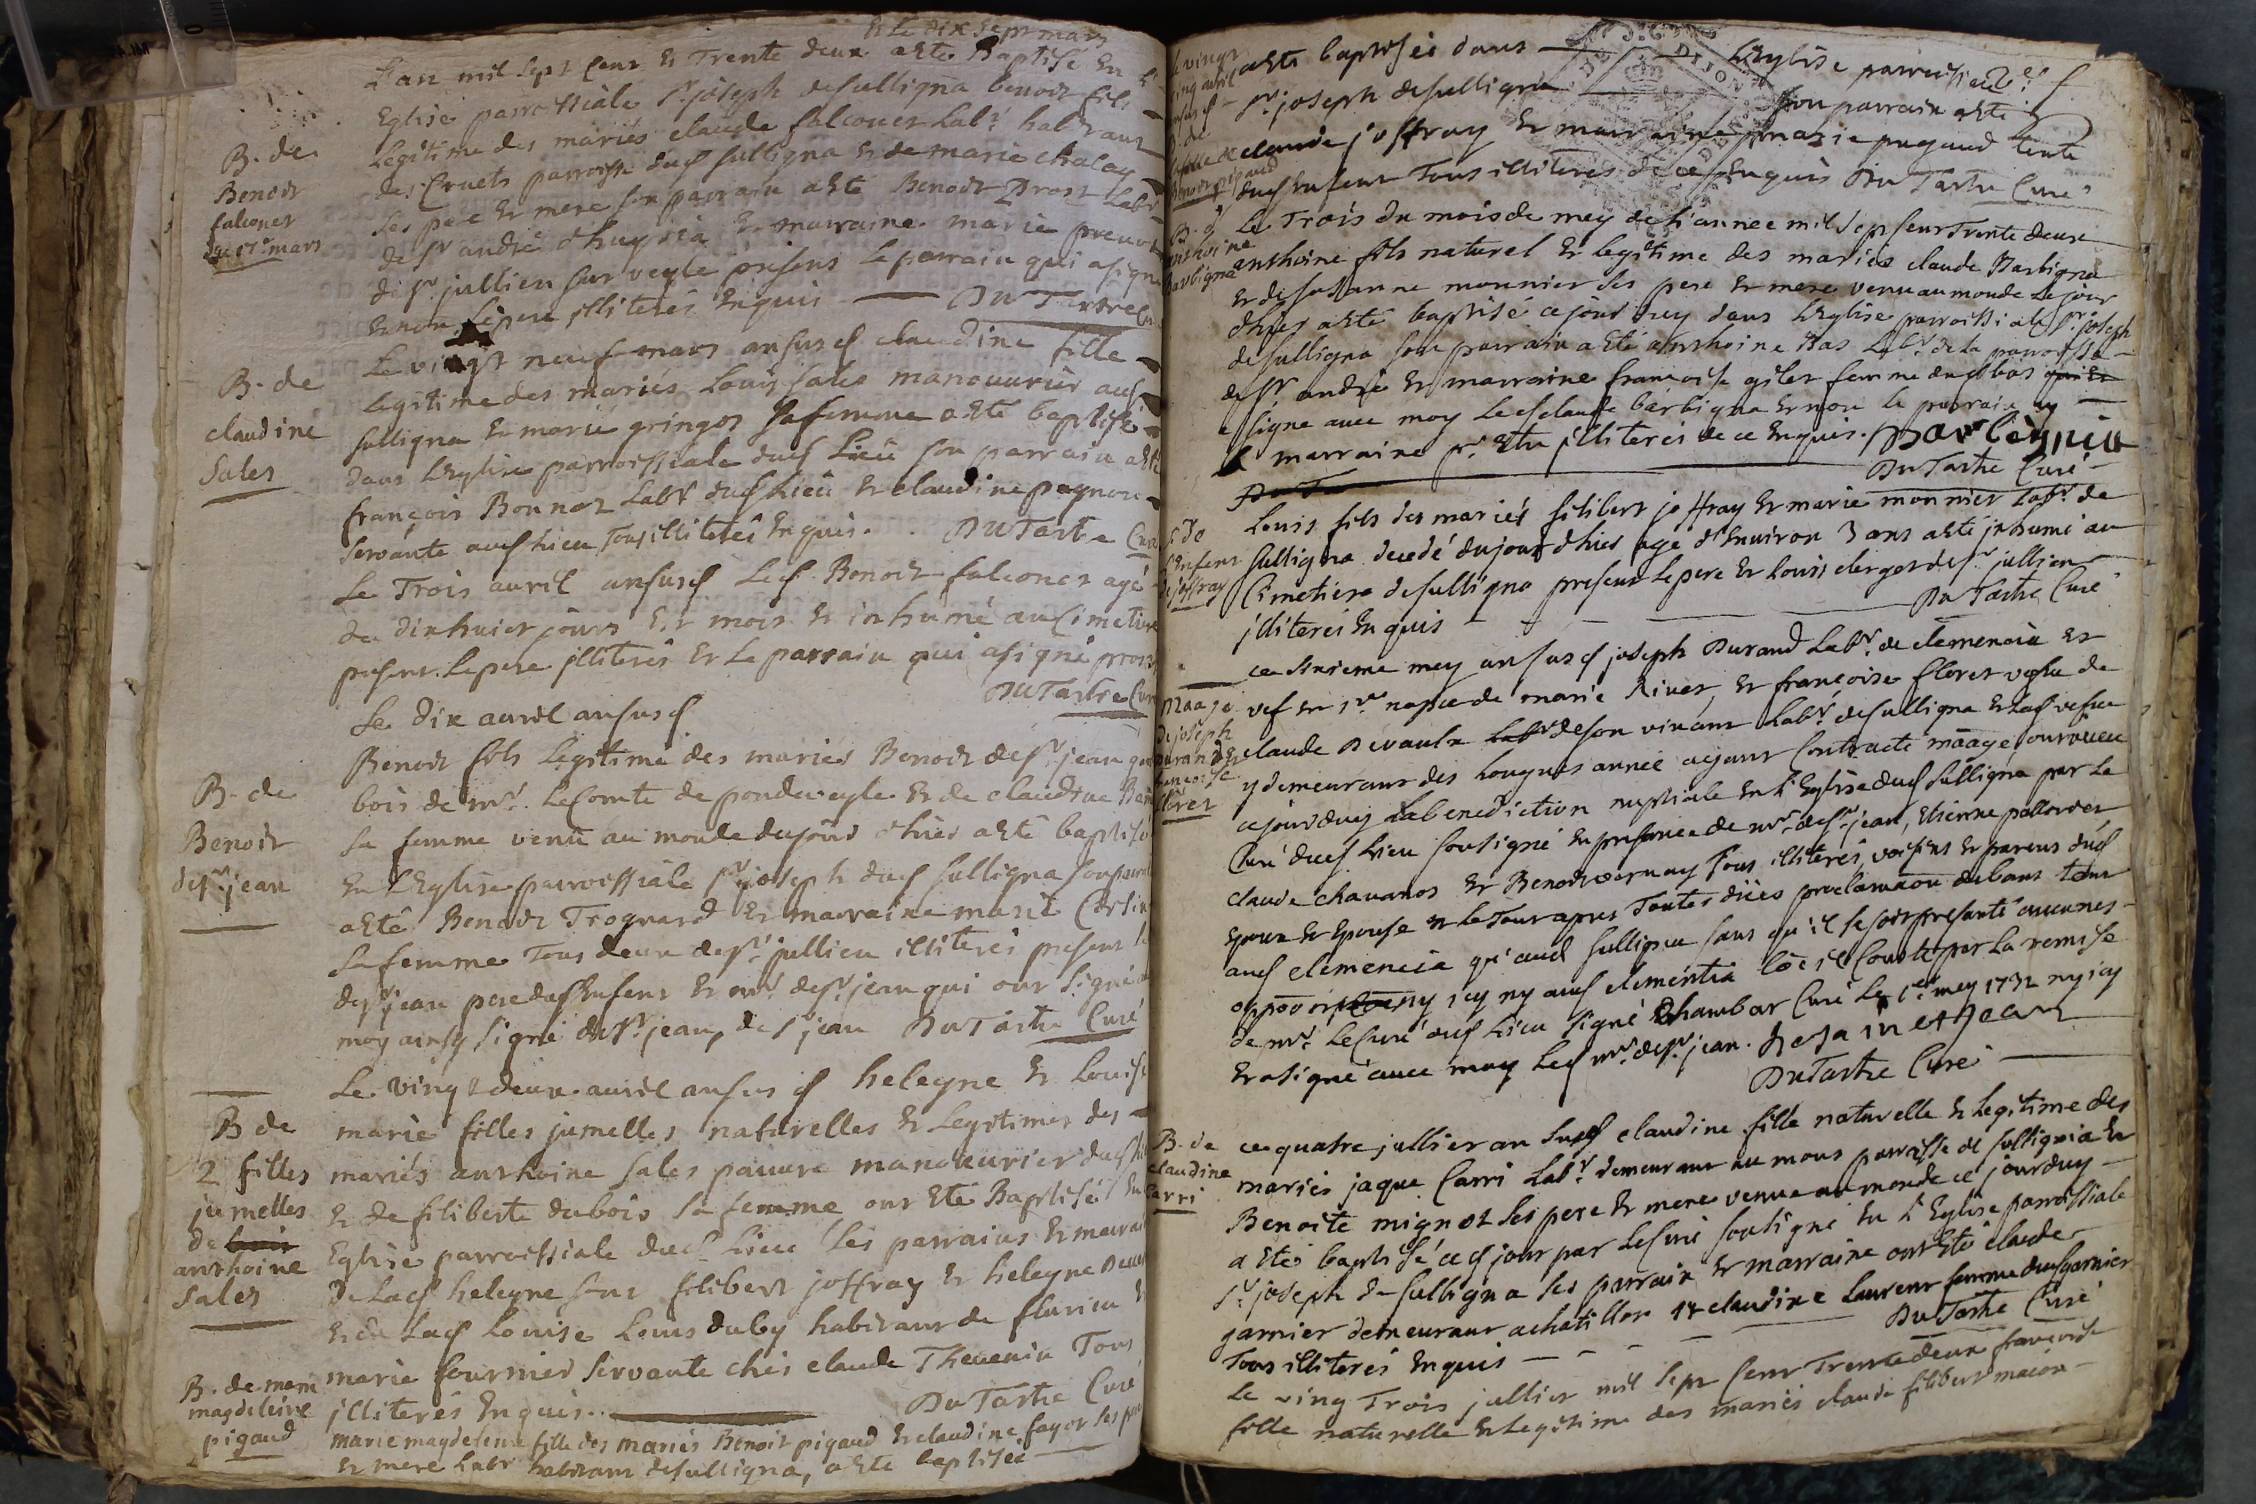 Et Le dix sept mars
L'an mil sept Cent et Trente deux a ete Baptisé en l'
Eglise parrossiale st joseph de sulligna benoit fils
B. de
Benoit
falconet
du 17e mars
legitime des mariés claude falconet Labr. habitant
des Cruets parroisse dud sulligna et de marie chalay
ses pere et mere son parrain a ete Benoit Prost Labr
de st andré d'huyria et marraine marie prevost
de st jullien sur veyle présens le parrain qui a signe
et non le pere illiterés enquis DuTartre
Le vingt neuf mars an susd claudine fille
B. de
claudine
Sales
legitime des mariés Louis sales manouvrier aud
sulligna et marie gringoz sa femme a ete baptisé
dans l'Eglise parroissiale dud Lieu son parrain a ete
françois Bonnet Labr dud Lieu et claudine pagnon
servante aud Lieu Tous illiterés enquis. DuTartre Curé
Le Trois avril an susd Led. Benoit falconet agé
de dix huict jours est mort et inhumé au cimetiere
present le pere illiteré et Le parrain qui a signé prost
DuTartre Curé
Le dix avril an susd
Benoit fils legitime des mariés Benoit de st jean
B. de
Benoit
de st jean
bois de mr. Le Comte de pondeveyle et de claudine
sa femme venu au monde du jour d'hier a ete baptisé
en l'Eglise parroissiale st joseph dud sulligna son parrain
a ete Benoit Trognard et marraine marie
sa femme Tous deux de st jullien illiterés present le
de st jean pere dud Enfent et mr. de st jean qui ont signé
moy ainsy signé de st jean, de st jean DuTartre Curé
Le vingt deux avril an susd heleyne et Louise
B de
2 filles
jumelles
de
anthoine
sales
marie filles jumelles naturelles et Legitimes des
mariés anthoine sales pauvre manouvrier dud
et de filiberte dubois sa femme ont ete Baptisés en
Eglise parroissiale dud Lieu Les parrains et marraines
de Lad heleyne sont filibert joffray et heleyne
et de Lad Louise Louis duby habitant de flurieu
marie fournier servante chés claude Thevenin Tous
illiterés enquis.. DuTartre Curé
B. de marie
magdeleine
pigaud
marie magdeleine fille des mariés Benoit pigaud et claudine fayot ses pere
et mere Labr habitant de sulligna, a ete baptisée
Le vingt
cinq avril
an susd
B. de
fille de
Benoit pigaud
a ete baptisée dans L'Eglise parroissialle
st joseph de sulligna son parrain a ete
claude joffray et marraine marie pugaud tente
dud Enfent Tous illiterés de ce Enquis DuTartre Curé
B. d'
anthoine
Barbigna
Le Trois du mois de mey de l'annee mil sept Cent Trente deux
anthoine fils naturel et legitime des mariés claude Barbigna
et de susanne monnier ses pere et mere venu au monde Le jour
d'hier a ete baptisé ce jourduy dans L'Eglise parroissiale st joseph
de sulligna son parrain a ete anthoine Bas Labr. de La parroisse
de st andré et marraine françoise gilet femme dud bas
signé avec moy Led claude barbigna et non le parrain ny
marraine pr Etre illiterés de ce Enquis. Barbignia
DuTartre Curé
S. de
l'Enfent
de joffray
Louis fils des mariés filibert joffray et marie monnier Labr. de
sulligna decedé du jour d'hier agé d'Environ 3 ans a ete inhumé au
Cimetiere de sulligna present Le pere et Louis clerget de st jullien
illiterés enquis DuTartre Curé
Maage
de joseph
durand et
francoise
floret
ce sixieme mey an susd joseph Durand Labr. de clemencia et
vef en 1re nopce de marie River, et françoise floret vefve de
claude Devaulx de son vivant Labr. de sulligna et Lad vefve
y demeurant des Longues année ayant Contracté maage ont receu
ce jourduy La benediction nuptiale en L'Eglise dud sulligna par Le
Curé dud Lieu soussigné en presence de mr. de st jean, Etienne pallordet
claude chavanos et Benoit vernay Tous illiterés, voisins et parens dud
Epoux et Epouse et Le Tour apres Toutes dües proclamaon de bans tant
aud clemencia qu'aud sulligna sans qu'il se soit presanté aucunes
opposition ny icy ny aud clementia Coe il Conste par La remise
de mr. Le Curé dud Lieu signé Chambar Curé Le 1er mey 1732 ny icy
et a signé avec moy Led mr. de st jean. de sainct jean
DuTartre Curé
B. de
claudine
Carri
ce quatre jullier an susd claudine fille naturelle et Legitime des
mariés jaque Carri Labr. demeurant au mons parroisse de sulligna et
Benoite mignot ses pere et mere venue au monde ce jourduy
a ete baptisé ce d jour par Le Curé soussigné en L'Eglise parroissiale
st joseph de sulligna ses parrain et marraine ont Eté claude
garnier demeurant a chatillon et claudine Laurent femme dud garnier
Tous illiterés Enquis DuTartre Curé
Le ving Trois jullier mil sept Cent Trente deux françoise
fille naturelle et Legitime des mariés claude filibert macon